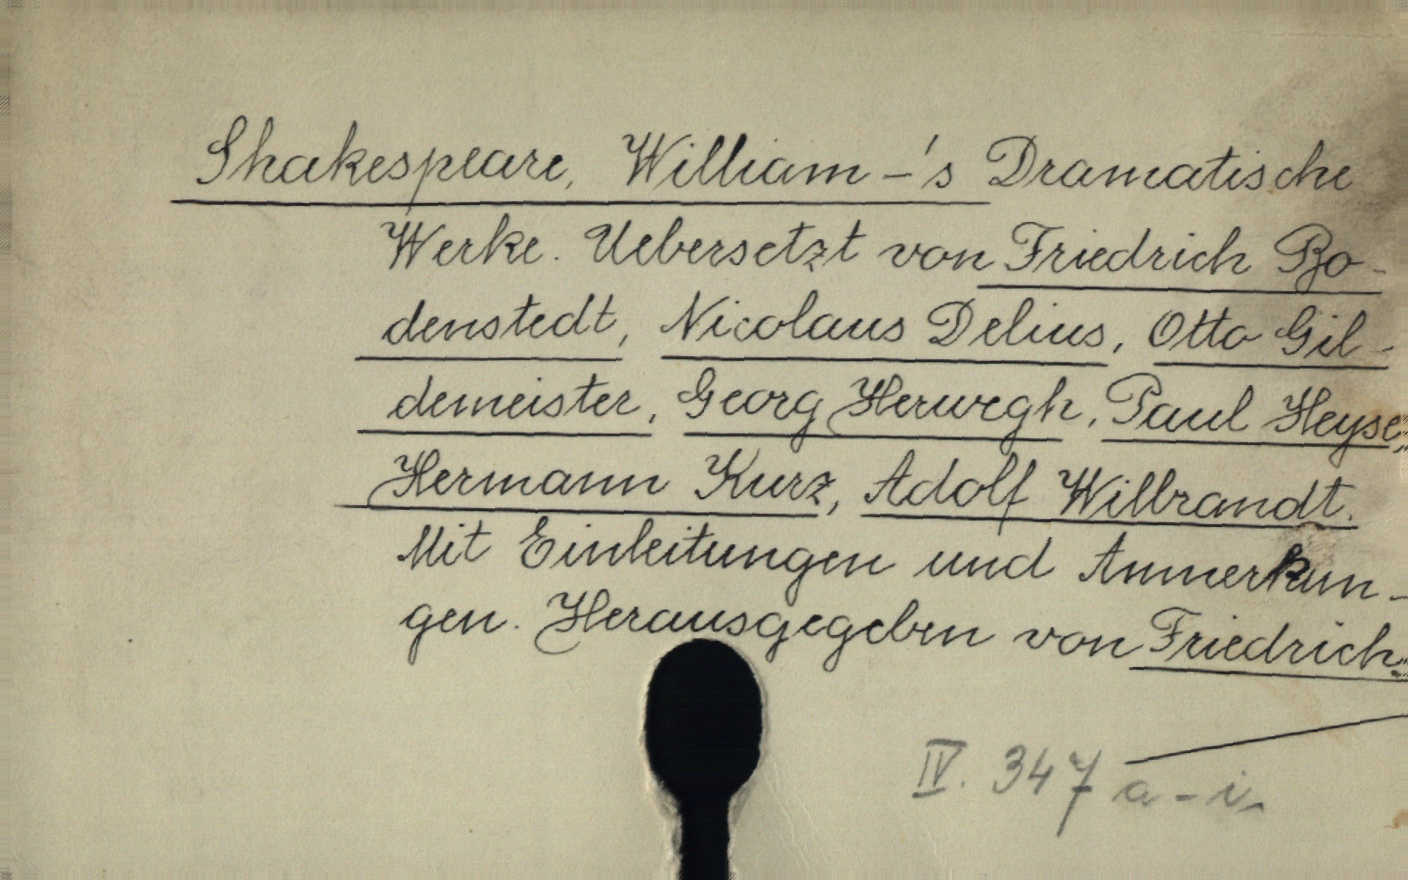 Shakespeare, William -'s Dramatische
Werke. Uebersetzt von Friedrich Bo-
denstedt, Nicolaus Delius, Otto Gil-
demeister, Georg Herwegh, Paul Heyse,
Hermann Kurz, Adolf Wilbrandt.
Mit Einleitungen und Anmerkun-
gen. Herausgegeben von Friedrich
IV. 347 a-i